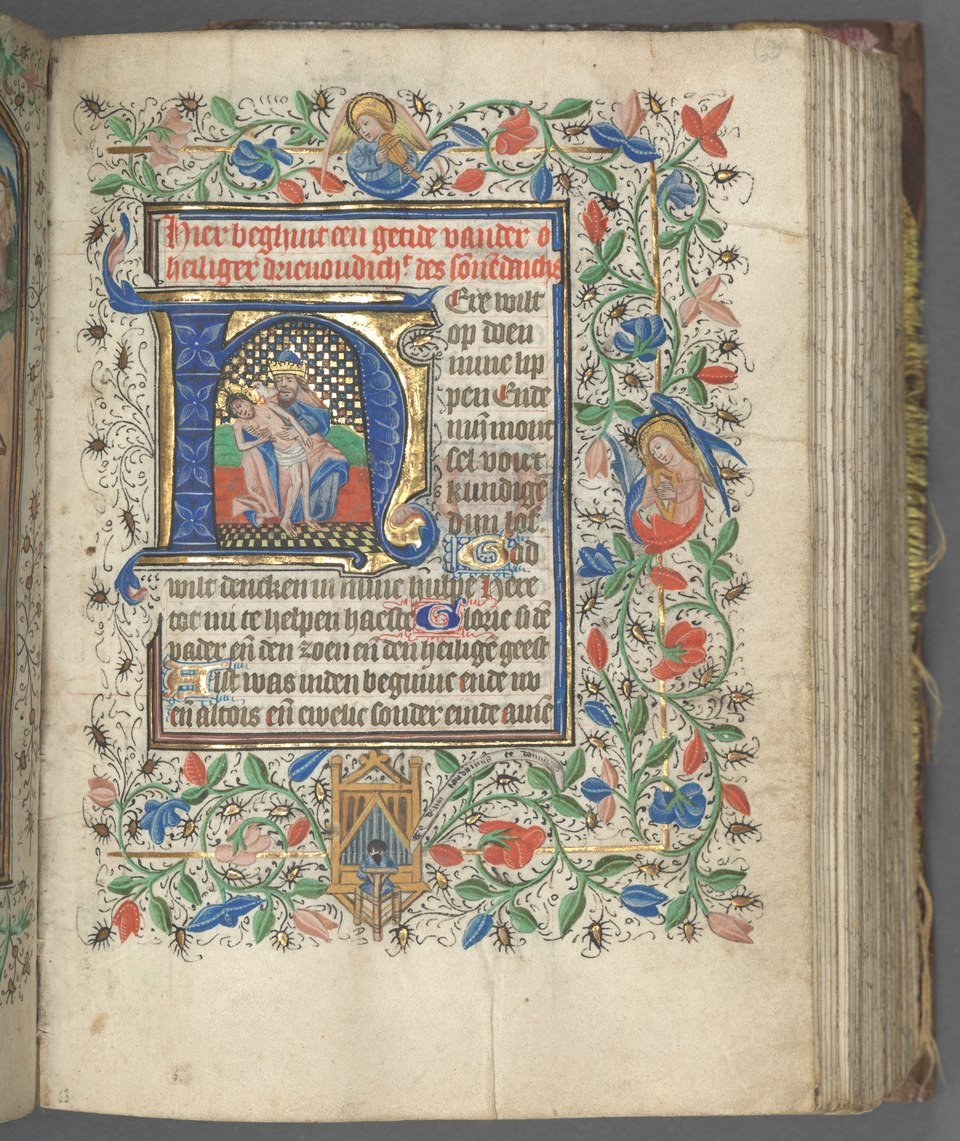 Hier beghint een getide vander o
heiliger drieuoudich^t des sonnēdaichs
HEere wilt
op doen
mine lip
pen Ende
mijn mont
sel voert
kundigē
dijn lof
God
wilt dencken in mine hulpe Here
tot mi te helpen haeste Glorie si dē
vader eñ den zoen eñ den heiligē geest
Alst was inden beghinne ende nv
eñ altois eñ ewelic sonder einde amē
te deum laudamus te dominū
63
68